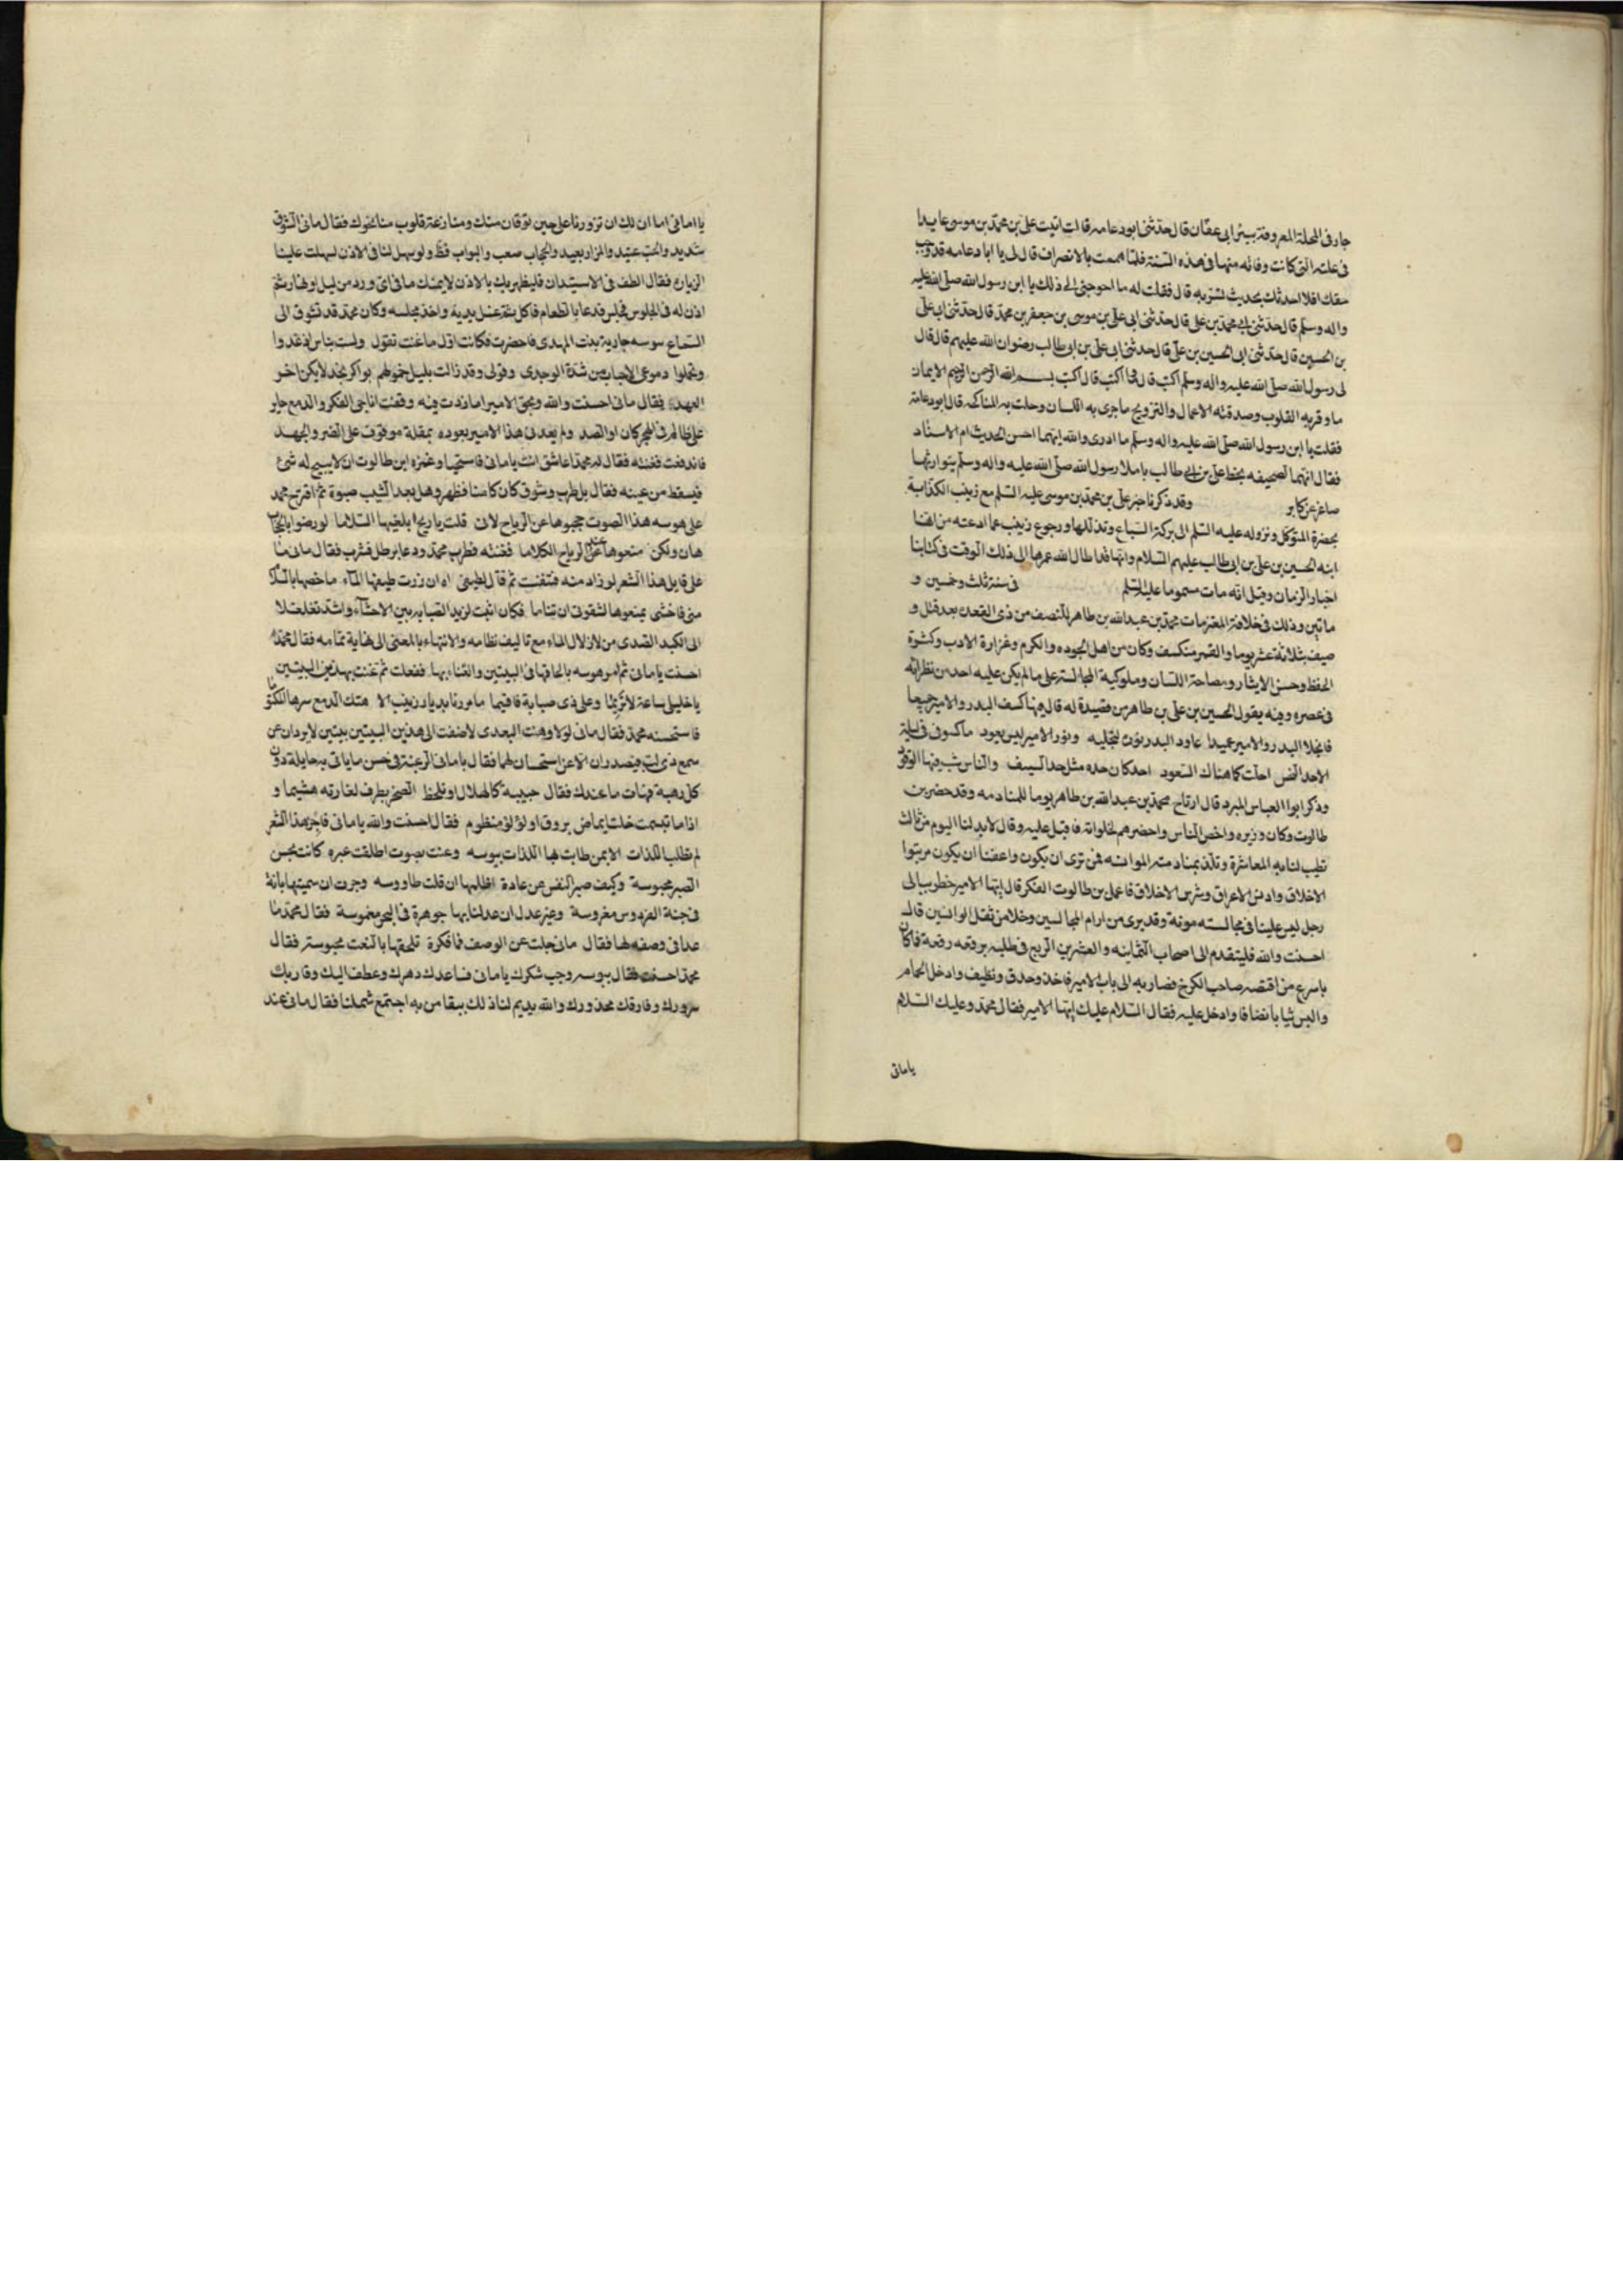 جار فى المحلة المعروفة ببئر ابى عفان قال حدثنى ابو دعامه قال اتيت على بن محمد بن موسى عايدا
فى علته التى كانت وفاته منها فى هذه السنة فلما هممت بالانصراف قال لى يا ابا دعامه قد وجب
حقك افلا احدثك بحديث تسر به قال فقلت له ما احوجنى الى ذلك يا ابن رسول الله صلى الله عليه
واله وسلم قال حدثنى ابى محمد بن على قال حدثنى ابى على بن موسى بن جعفر بن محمد قال حدثنى ابى على
بن الحسين قال حدثنى ابى الحسين بن على قال حدثنى ابى على بن ابى طالب رضوان الله عليهم قال قال
لى رسول الله صلى الله عليه واله وسلم اكتب قال فما اكتب قال اكتب بسم الله الرحمن الرحيم الايمان
ما وقر به القلوب وصدقته الاعمال والتزويج ما جرى به اللسان وحلت به المناكحه قال ابو دعامة
فقلت يا ابن رسول الله صلى الله عليه واله وسلم ما ادرى والله ايتهما احسن الحديث ام الاسناد
فقال انهما لصحيفه بخط على بن ابى طالب باملا رسول الله صلى الله عليه واله وسلم يتوارثها
صاغر عن كابر وقد ذكرنا خبر على بن محمد بن موسى عليه السلم مع زينب الكذابة
بحضرة المتوكل ونزوله عليه السلم الى بركة السباع وتذللها ورجوع زينب عما ادعته من انها
ابنه الحسين بن على بن ابى طالب عليهم السلام وانها قد اطال الله عمرها الى ذلك الوقت فى كتابنا
اخبار الزمان وقيل انه مات مسموما عليه السلم فى سنة ثلث وخمسين و
ماتين وذلك فى خلافة المعتز مات محمد بن عبد الله بن طاهر للنصف من ذى القعدة بعد قتل و
صيف بثلاثة عشر يوما والقمر منكسف وكان من اهل الجوده والكرم وغزارة الادب وكثرة
الحفظ وحسن الايثار وفصاحة اللسان وملوكية المجالسة على ما لم يكن عليه احد من نظرائه
فى عصره وفيه يقول الحسين بن على بن طاهر من قصيدة له قال فيها كسف البدر والامير جميعا
فانجلا البدر والامير عميدا عاود البدر نوره لتجليه ونور الامير ليس يعود ماكسوف فى ليلة
الاحد النحس احلت كما هناك السعود احد كان حده مثل حد السيف والناس شب فيها الوقود
وذكر ابوا العباس المبرد قال ارتاح محمد بن عبد الله بن طاهر يوما للمنادمه وقد حضر بن
طالوت وكان وزيره واخص الناس واحضرهم لخلواته فاقبل عليه وقال لابد لنا اليوم من ثالث
تطيب لنا به المعاشرة وتلذ بمنادمته الموانسه فمن ترى ان يكون واعفنا ان يكون مربتوا
الاخلاق وادنس الاعراق وشرس الاخلاق فاعمل بن طالوت الفكر قال ايها الامير خطر ببالى
رجل ليس علينا فى مجالسته مونة وقد برى من ابرام المجالسين وخلا من ثقل الوانسين قال
احسنت والله فليتقدم الى اصحاب الثمانيه والعشرين الربع فى طلبه برقعه رقعة فاكان
باسرع من اقتصه صاحب الكرخ فصار به الى باب الامير فاخذ وحذق ونظيف وادخل الحمام
والبس ثيابا نضافا وادخل عليه فقال السلام عليك ايها الامير فقال محمد وعليك السلام
يامانى
يا مانى اما ان لك ان تزورنا على حين توقان منك ومنازعة قلوب منا نحوك فقال مانى الشوق
شديد والحب عتيد والمزار بعيد والحجاب صعب والبواب فظ ولو سهل لنا فى الاذن لسهلت علينا
الزيارة فقال الطف فى الاستيذان فليظهر بك بالاذن لا يمنك مانى اى ورد من ليل او نهار ثم
اذن له فى الجلوس فجلس فدعا بالطعام فاكل ثم غسل يديه واخذ مجلسه وكان محمد قد تشوق الى
السماع سوسه جارية بنت المهدى فاحضرت فكانت اول ما غنت تقول ولست بناس اذ غدوا
وتحملوا دموعى الاحباب من شدة الوجدى وقولى وقد زالت بليل حمولهم بواكر نجد لا يكن اخر
العهد فقال مانى احسنت والله وبحق الامير اما زدت فيه وقفت اناجى الفكر والدمع حاير
على ظالم فى الهجر كان او الصد ولم يعدنى هذا الامير بعوده بمقلة موقوف على الضر والجهد
فاندفعت فغنته فقال له محمد اعاشق انت يا مانى فاستحيا وغمزه ابن طالوت ان لا يبيح له شئ
فيسقط من عينه فقال بل طرب وشوق كان كامنا فظهر وهل بعد الشيب صبوة ثم اقترح محمد
على هوسه هذا الصوت حجبوها عن الرياح لانى قلت يا ريح ابلغيها السلاما لو رضوا بالحجاب
هان ولكن منعوها عند الرياح الكلاما فغنته فطرب محمد ودعا برطل فشرب فقال مانى ما
على قايل هذا الشعر لو زاد منه فتغنت ثم قال لطيفى اه ان زرت طيفها الماء ما خصها بالسلا
منى فاخشى يمنعوها لشقوتى ان تناما فكان اثبت لزيد الصبابه بين الاحشاء واشد تغلغلا
الى الكبد الصدى من لازلال الماء مع تاليف نظامه والانتهاء بالمعنى الى نهاية تمامه فقال محمد
احسنت يا مانى ثم امر هوسه بالحاقها فى البيتين والغناء بها ففعلت ثم غنت بهذين البيتين
يا خليلى ساعة لا تريما وعلى ذى صبابة فاقيما مامررنا بديار زينب الا هتك الدمع سرها المكتوما
فاستحسنه محمد فقال مانى لولا وهنت البعدى لاضفت الى هذين البيتين بيتين لا يردان عن
سمع ذى لب فيصدران الا عن استحسان لهما فقال يا مانى الرغبة فى حسن ما ياتى به حايلة دون
كل رهبة فهات ما عندك فقال حبيبة كالهلال او تلحظ الصخر بطرف لغارته هشيما و
اذا ما تبسمت خلت ايماض بروق او لؤلؤ منظوم فقال احسنت والله يا مانى فاجز هذا الشعر
لم تطلب اللذات الا بمن طابت بها اللذات بيوسه وغنت بصوت اطلقت عبره كانت بحبس
الصبر محبوسة وكيف صبر النفس عن عادة اظلمها ان قلت طاووسه وجرت ان سميتها بانة
فى جنة الفردوس مغروسة وغير عدل ان عدلنا بها جوهرة فى البحر مغموسة فقال محمد ما
عدا فى وصفه لها فقال مانى جلت عن الوصف فما فكرة تلحقها بالنعت محبوسة فقال
محمد احسنت فقال بيوسه وجب شكرك يا مانى فساعدك دهرك وعطف اليك وقاربك
سرورك وفارقك محذورك والله يديم لنا ذلك ببقا من به اجتمع شملنا فقال مانى عند